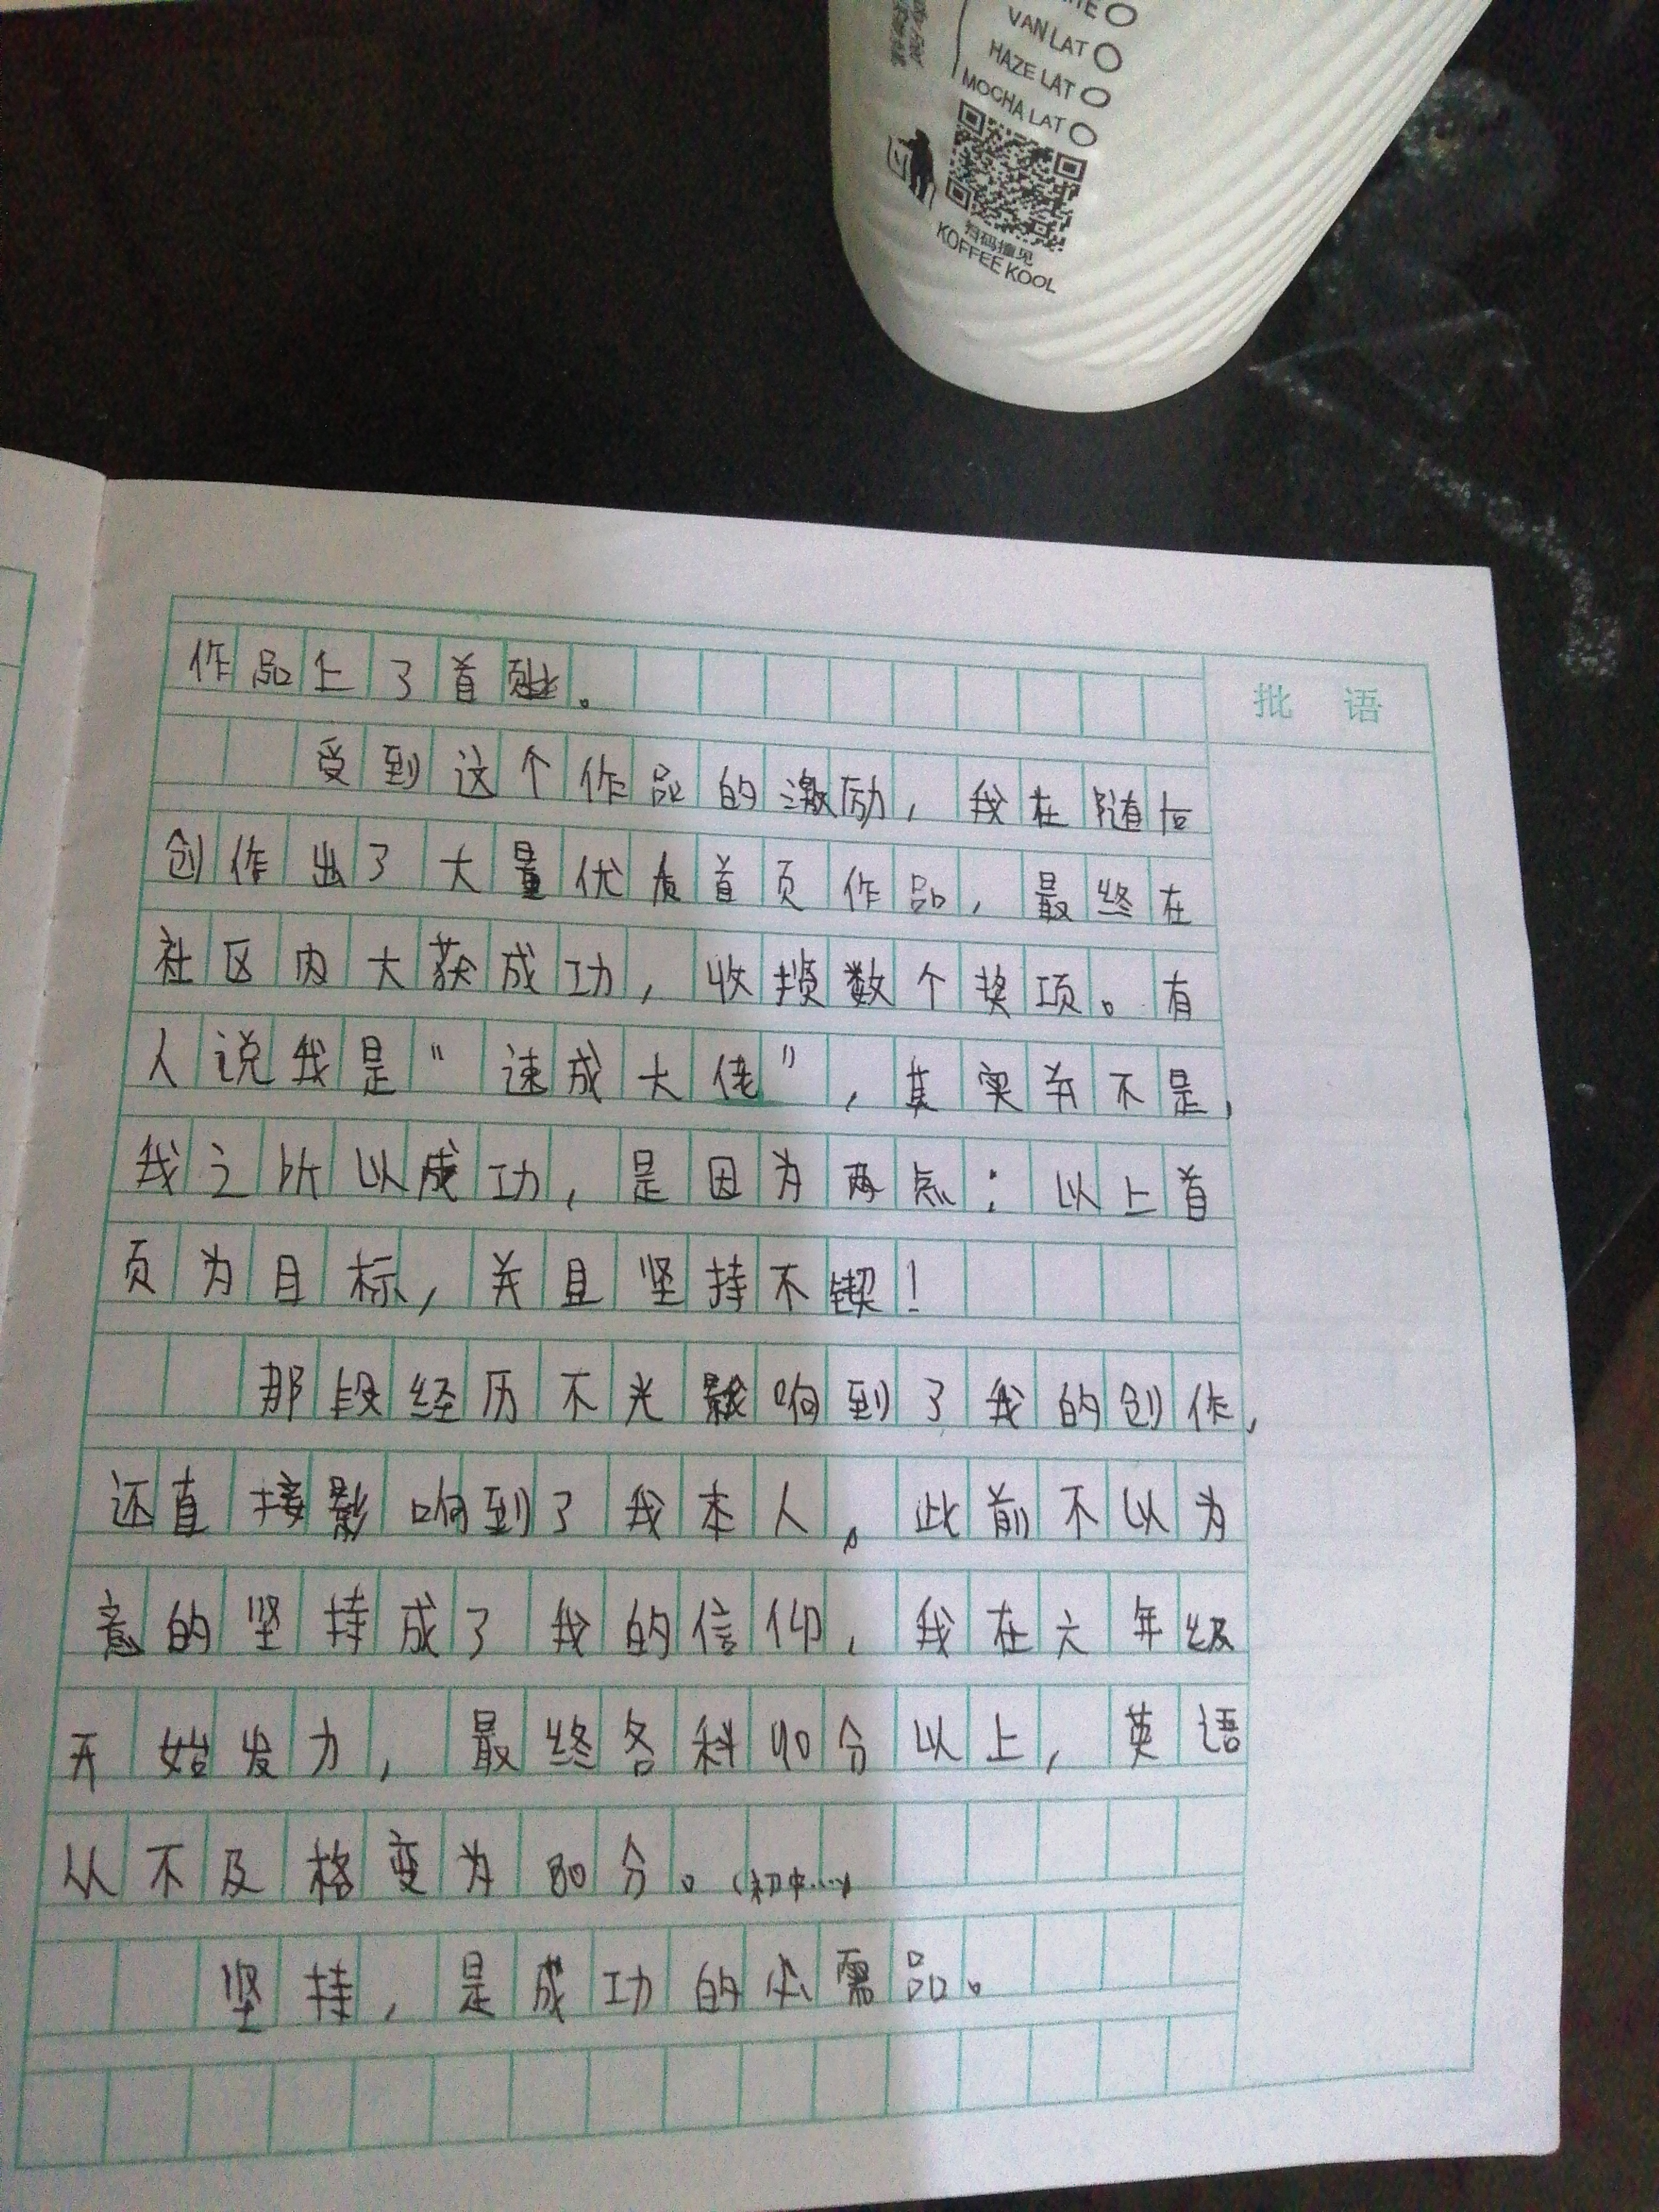 VAN LAT
HAZE LAT
MOCHA LAT
扫码撞见
KOFFEE KOOL
批 语
作品上了首页。
受到这个作品的激励，我在随后
创作出了大量优质首页作品，最终在
社区内大获成功，收揽数个奖项。有
人说我是“速成大佬”，其实并不是，
我之所以成功，是因为两点：以上首
页为目标，并且坚持不锲！
那段经历不光影响到了我的创作，
还直接影响到了我本人。此前不以为
意的坚持成了我的信仰，我在六年级
开始发力，最终各科90分以上，英语
从不及格变为80分。（初中…）
坚持，是成功的必需品。